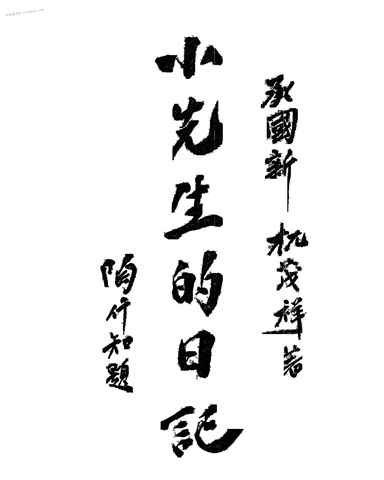 承國新 杭茂祥 著
小先生的日記
陶行知題